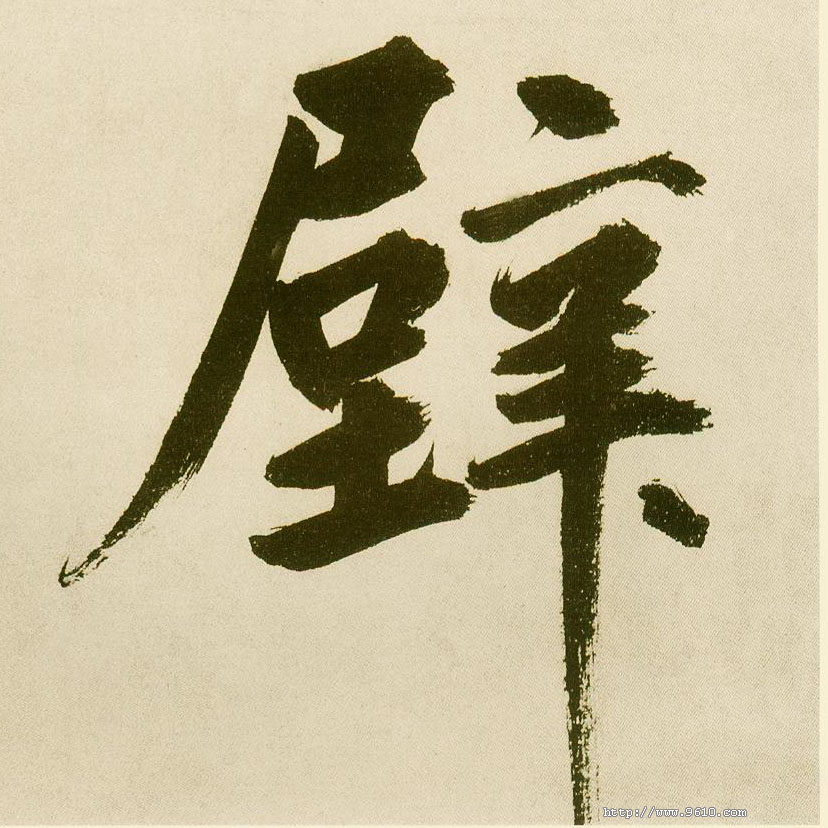 壁
http://www.9610.com